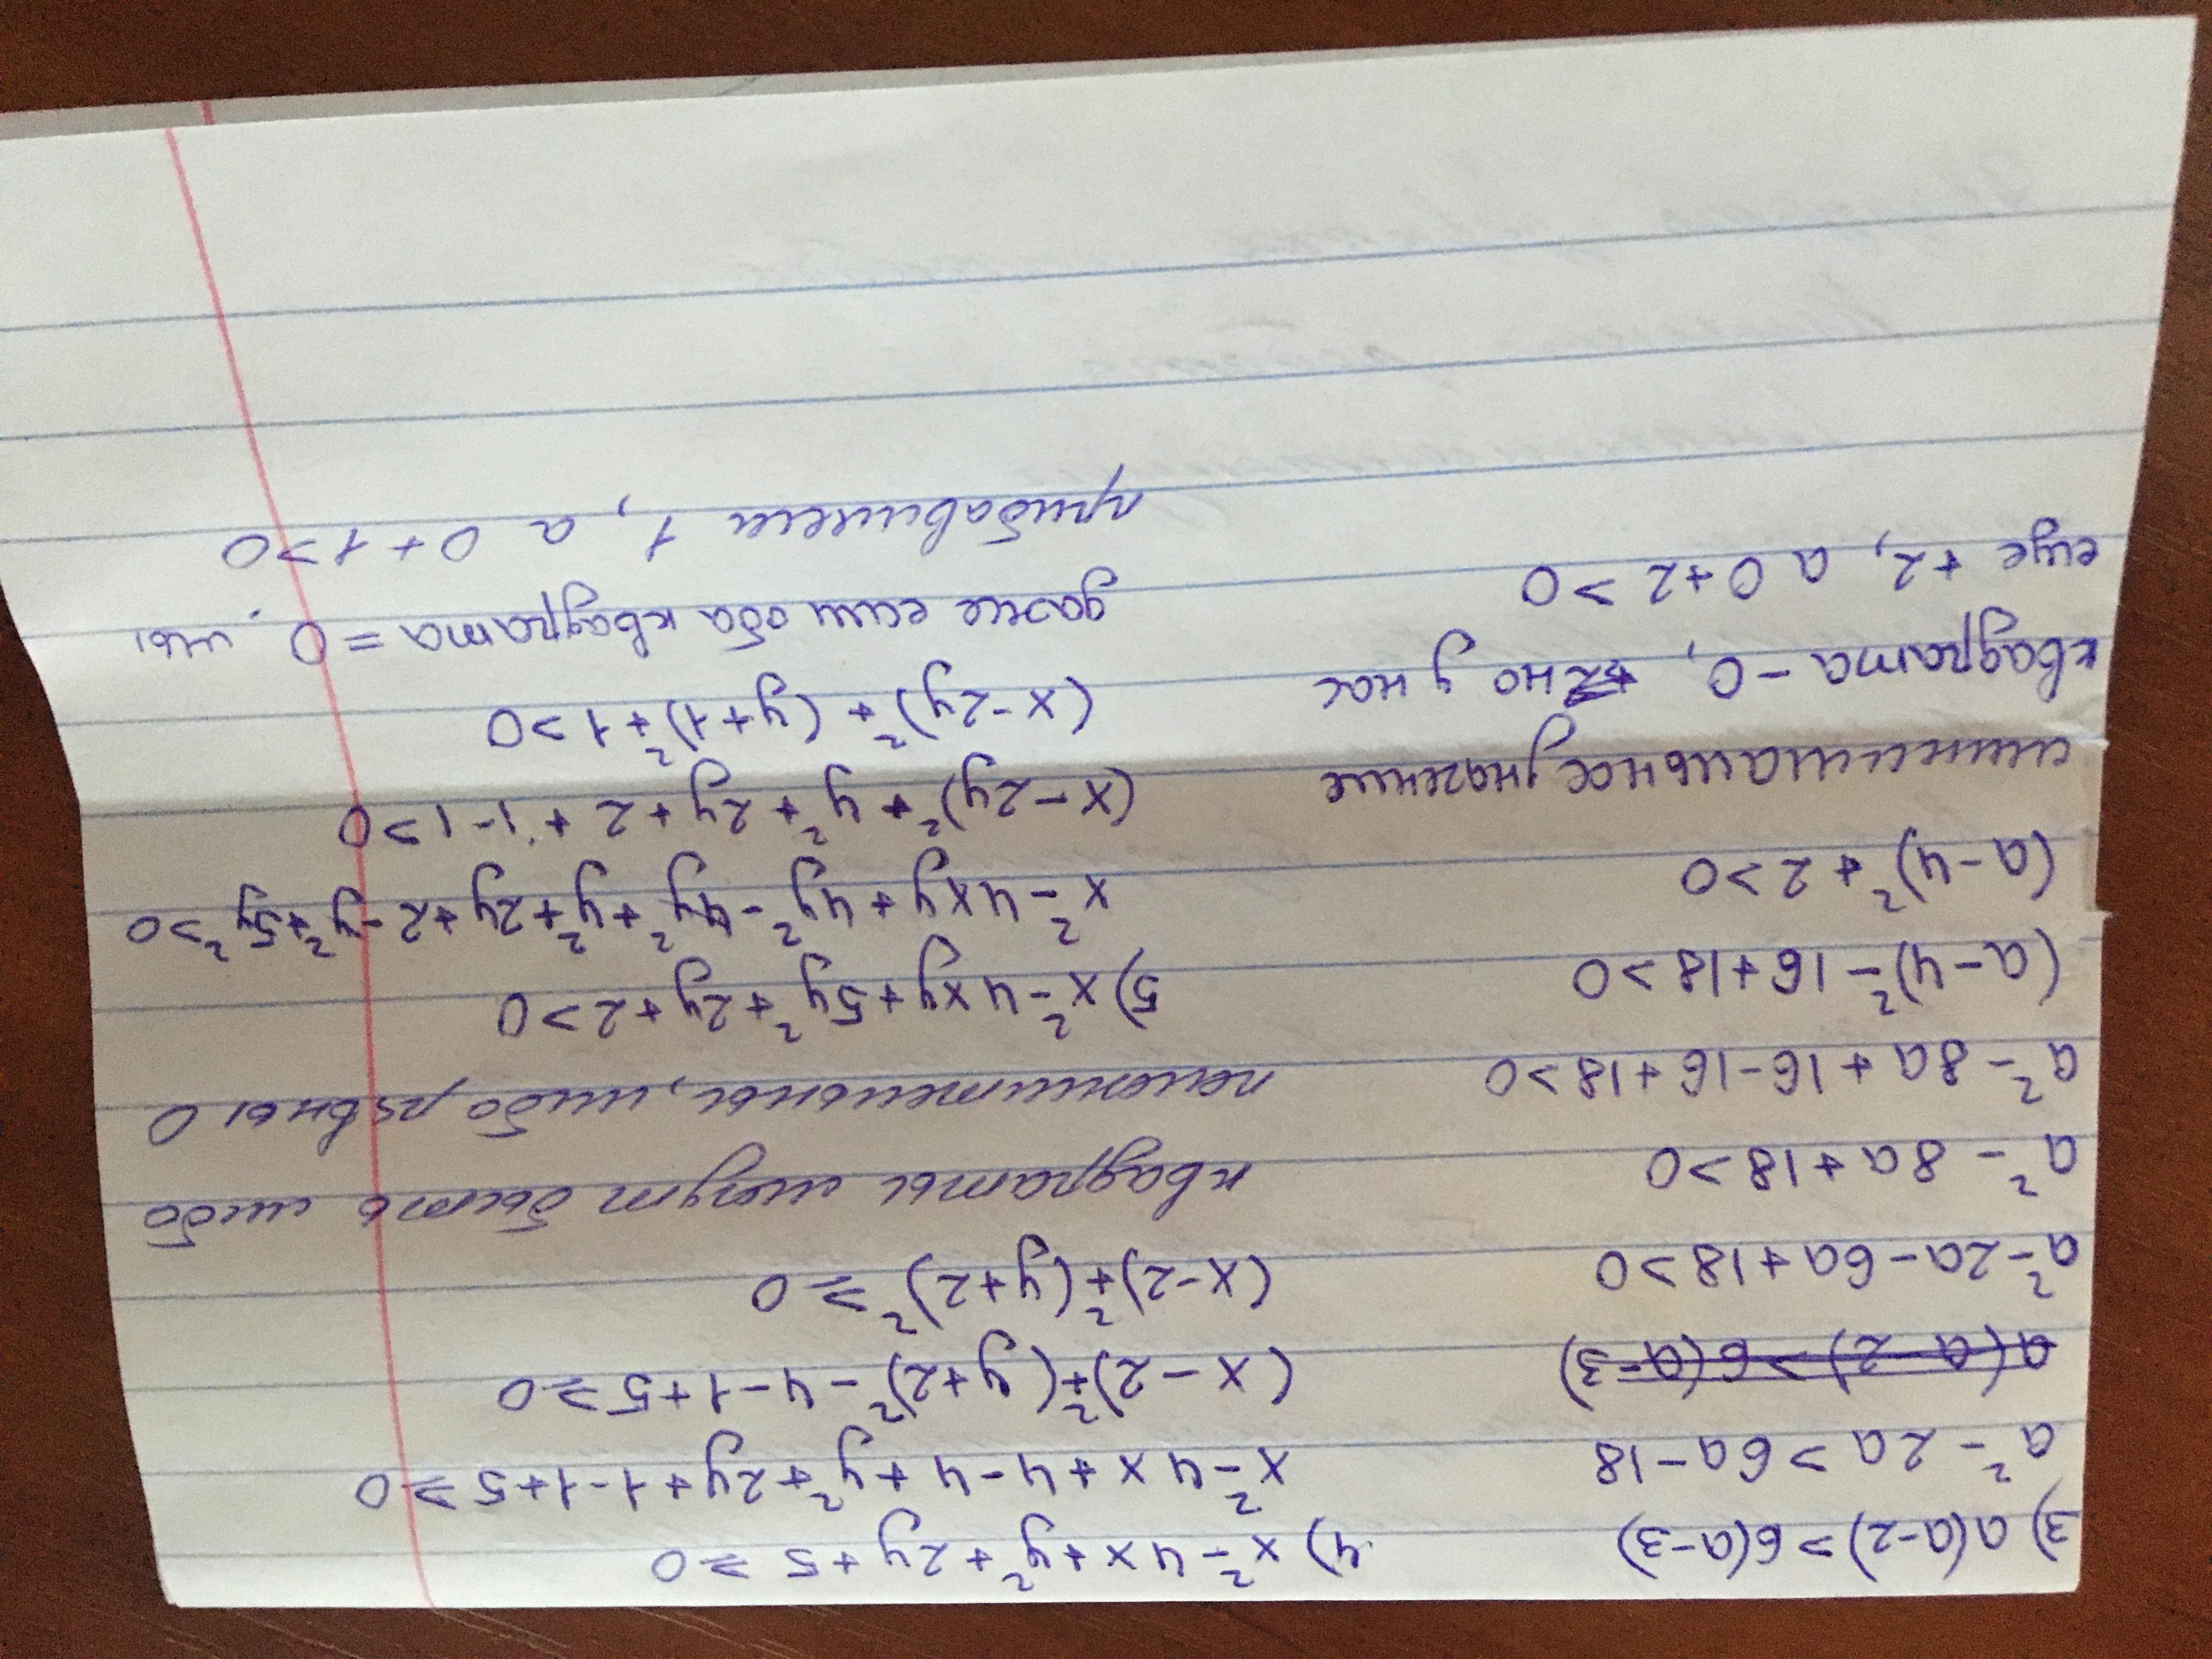 3) a(a-2)>6(a-3)
a²-2a>6a-18
a(a-2)>6(a-3)
a²-2a-6a+18>0
a²-8a+18>0
a²-8a+16-16+18>0
(a-4)²-16+18>0
(a-4)²+2>0
минимальное значение
квадрата -0, но у нас
еще +2, а 0+2>0
4) x²-4x+y²+2y+5≥0
x²-4x+4-4+y²+2y+1-1+5≥0
(x-2)²+(y+2)²-4-1+5≥0
(x-2)²+(y+2)²≥0
квадраты могут быть либо
положительны, либо равны 0
5) x²-4xy+5y²+2y+2>0
x²-4xy+4y²-4y²+y²+2y+2-y²+5y²>0
(x-2y)²+y²+2y+2+1-1>0
(x-2y)²+(y+1)²+1>0
даже если оба квадрата=0, мы
прибавляем 1, а 0+1>0